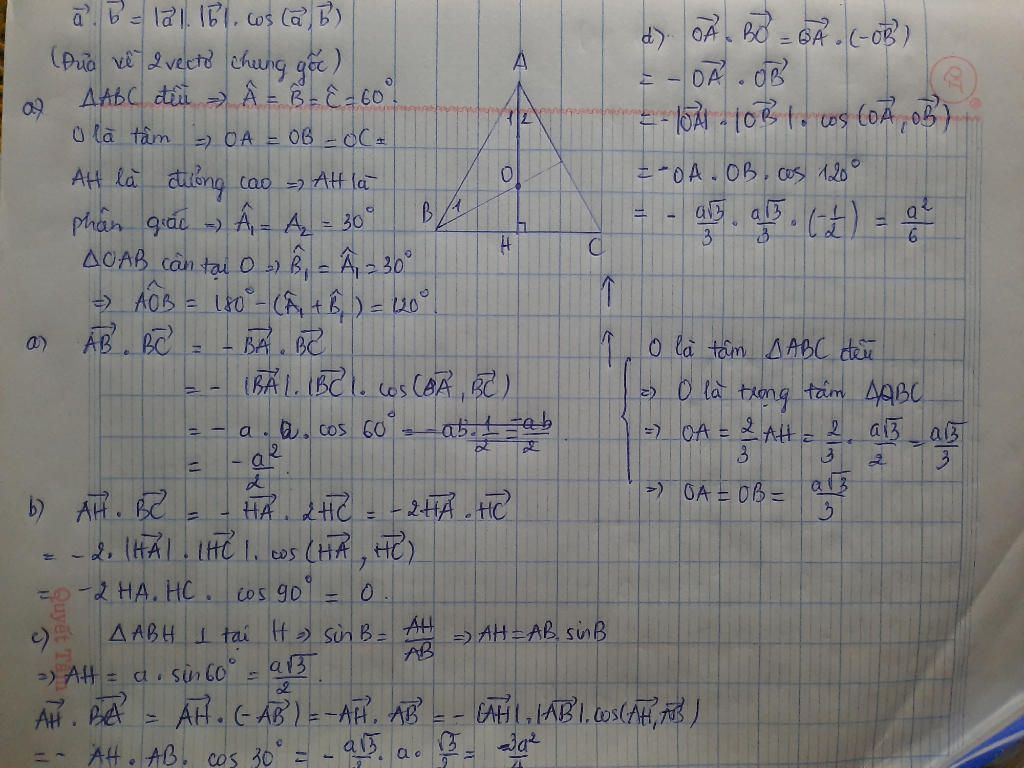 a⃗ . b⃗ = |a⃗| . |b⃗| . cos (a⃗, b⃗)
(Đưa về 2 vectơ chung gốc)
a) ΔABC đều => Â = B̂ = Ĉ = 60°
O là tâm => OA = OB = OC =
AH là đường cao => AH là
phân giác => Â₁ = A₂ = 30°
ΔOAB cân tại O => B̂₁ = Â₁ = 30°
=> AÔB = 180° - (Â₁ + B̂₁) = 120°
A
1 2
O
B 1
H
C
a) AB⃗ . BC⃗ = - BA⃗ . BC⃗
= - |BA⃗| . |BC⃗| . cos (BA⃗, BC⃗)
= - a . a . cos 60° = - ab . 1/2 = -ab/2
= -a²/2
b) AH⃗ . BC⃗ = - HA⃗ . 2HC⃗ = -2HA⃗ . HC⃗
= -2. |HA⃗| . |HC⃗| . cos (HA⃗, HC⃗)
= -2 HA . HC . cos 90° = 0
c) ΔABH ⊥ tại H => sin B = AH/AB => AH = AB. sin B
=> AH = a . sin 60° = a√3/2.
AH⃗ . BA⃗ = AH⃗ . (-AB⃗) = -AH⃗ . AB⃗ = - |AH⃗| . |AB⃗| . cos(AH⃗, AB⃗)
= - AH . AB . cos 30° = - a√3/2 . a . √3/2 = -3a²/4
d) OA⃗ . BO⃗ = OA⃗ . (-OB⃗)
= - OA⃗ . OB⃗
= - |OA⃗| . |OB⃗| . cos (OA⃗, OB⃗)
= - OA . OB . cos 120°
= - a√3/3 . a√3/3 . (-1/2) = a²/6
↑
↑ O là tâm ΔABC đều
=> O là trọng tâm ΔABC
=> OA = 2/3 AH = 2/3 . a√3/2 = a√3/3
=> OA = OB = a√3/3
Quyết Tâm